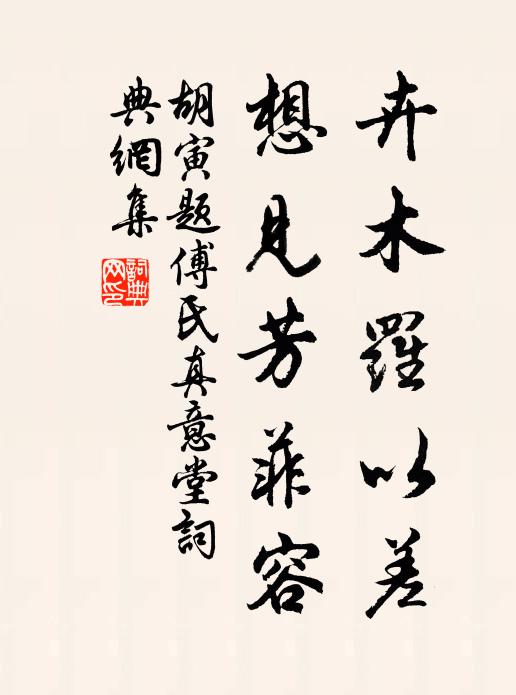 卉木羅以差
想見芳菲容
胡寅題傅氏真意堂詞
典網集
詞典
网印